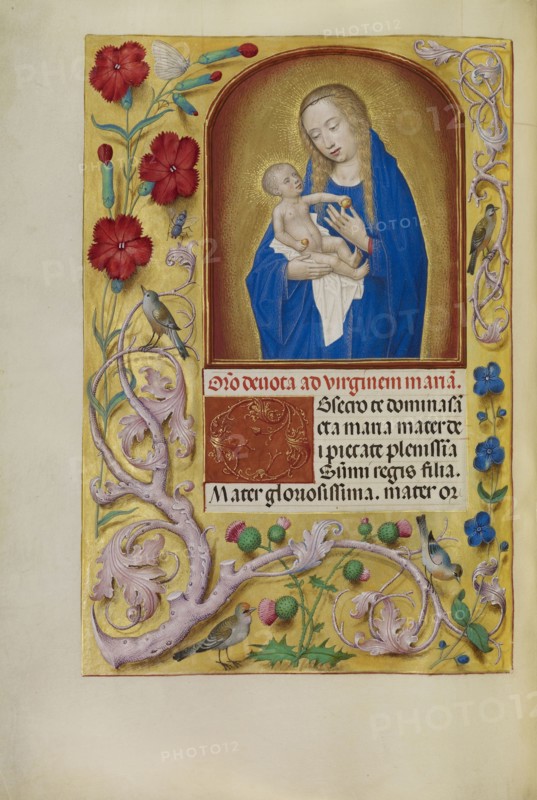 Oro deuota ad virginem mariā.
Bsecro te domina sā
cta maria mater de
i pietate plenissīa
Sūmi regis filia.
Mater gloriosissima. mater or
PHOTO12